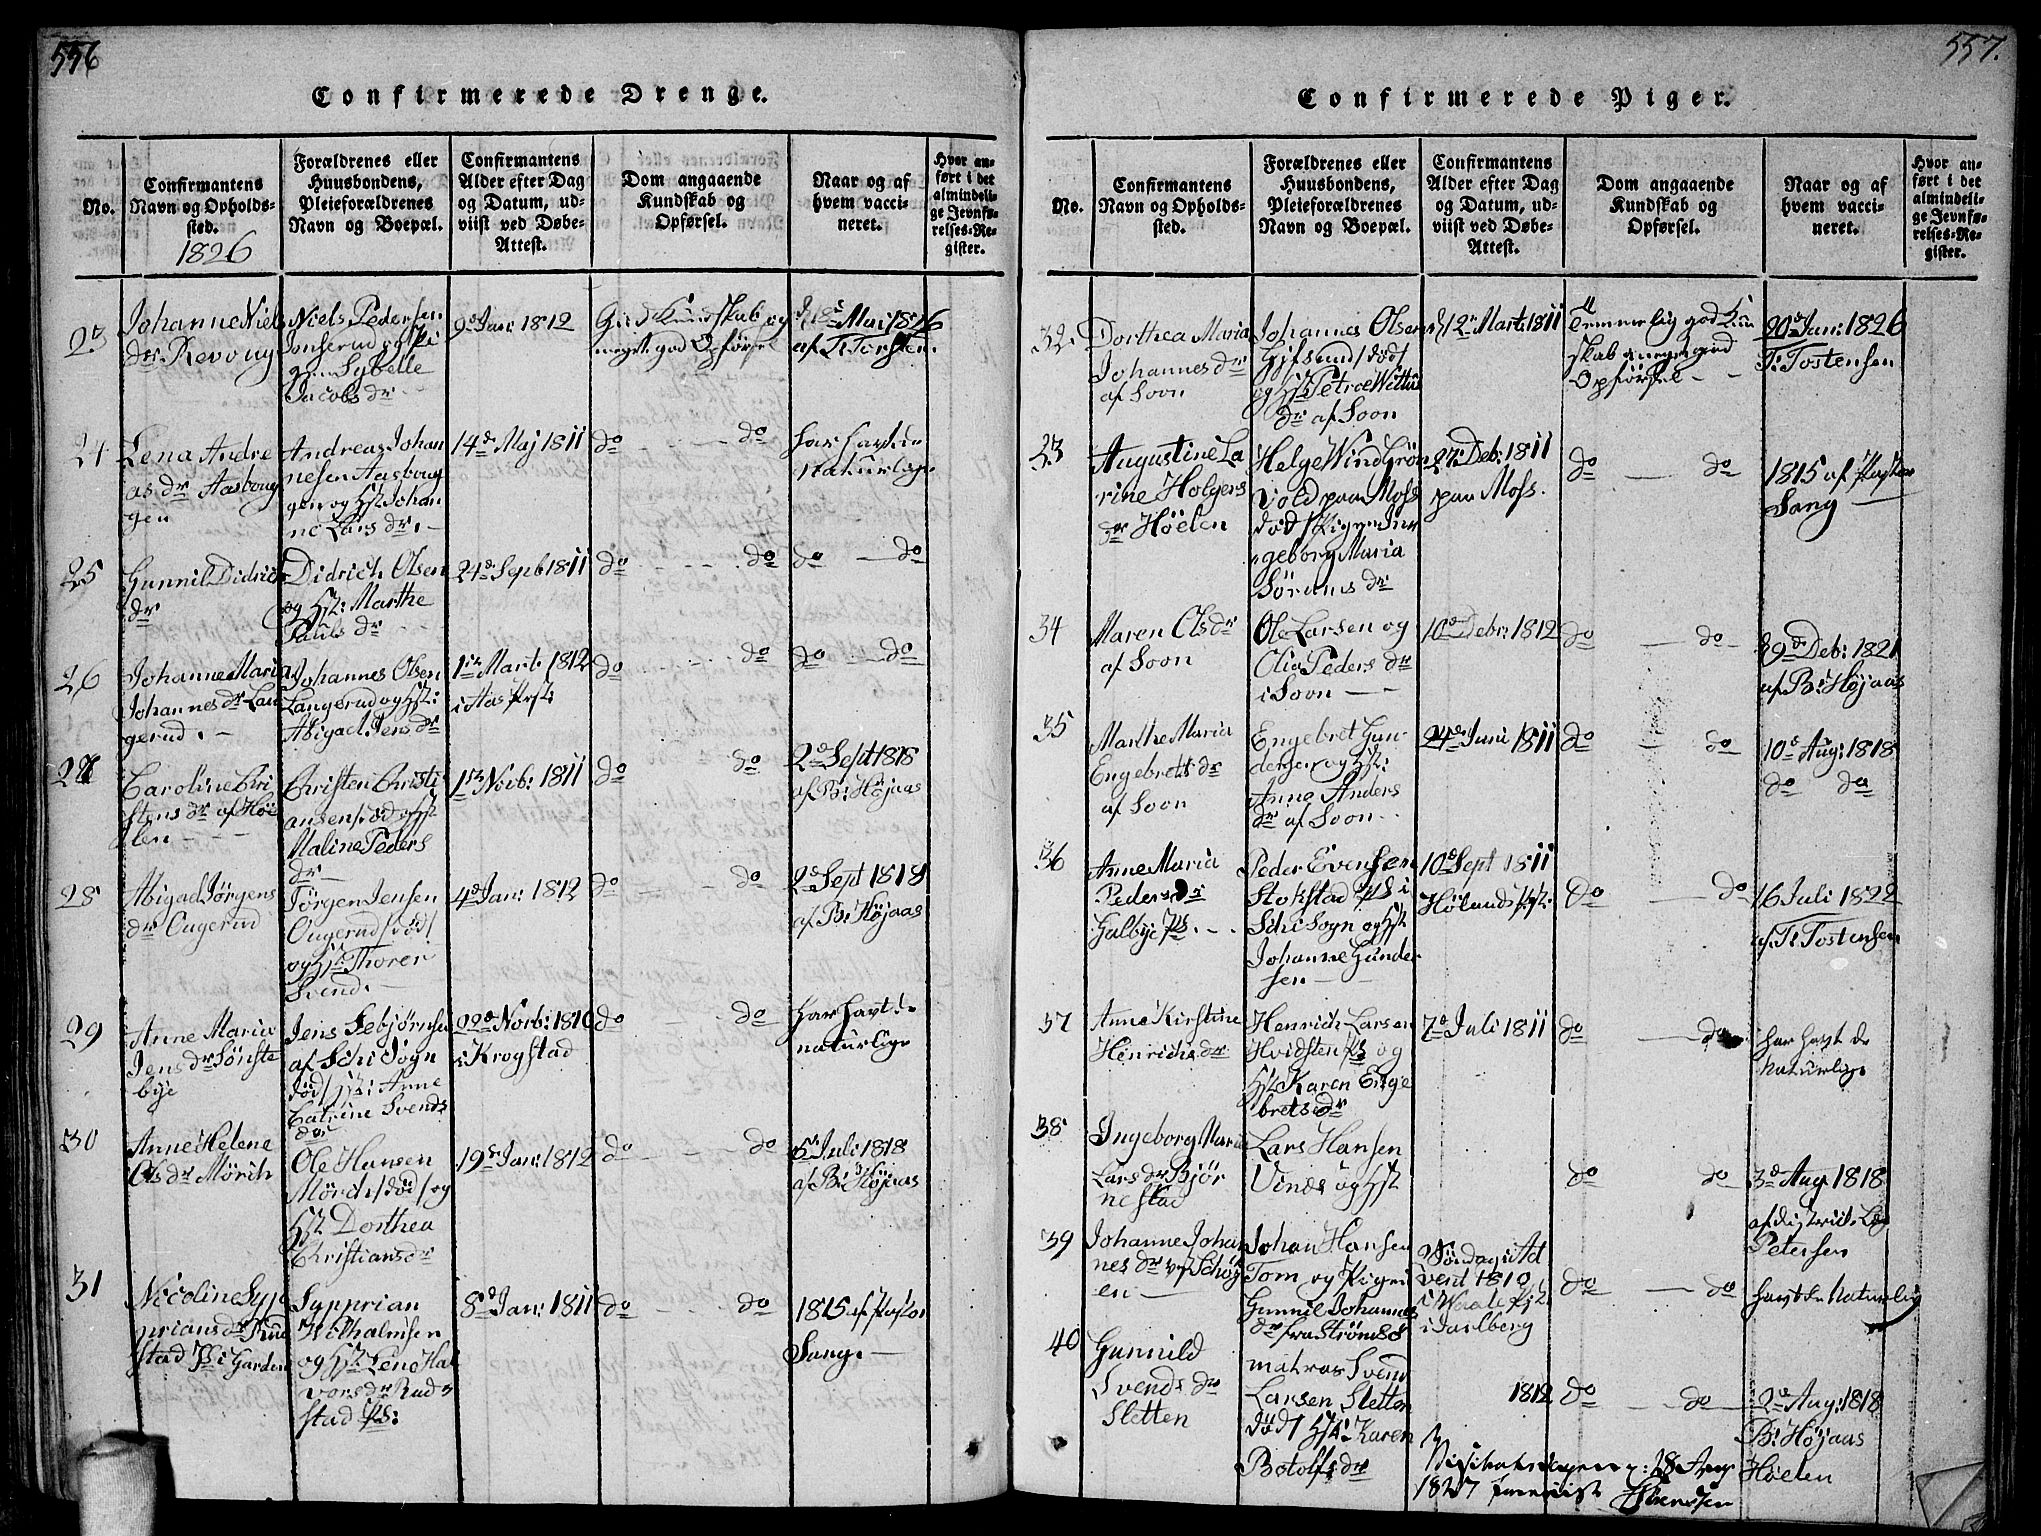 556
Confirmerede Drenge.
No.
Confirmantens
Navn og Opholds-
sted.
1826
Forældrenes eller
Huusbondens,
Pleieforældrenes
Navn og Boepæl.
Confirmantens
Alder efter Dag
og Datum, ud-
viist ved Døbe-
Attest.
Dom angaaende
Kundskab og
Opførsel.
Naar og af
hvem vacci-
neret.
Hvor an-
ført i det
almindeli-
ge Jevnfø-
relses-Re-
gister.
23
Johanne Niels
dr Revoug
Niels Pedersen
Jonserud og Pi
gen Sybelle
Jacobs dr
9de Jan: 1812
God Kundskab og
meget god Opførsel
18de Mai 1826
af T. Torsten.
24
Lena Andre
as dr Aasboug
gen
Andreas Johan
nesen Aasboug
gen og Hst Johan
ne Lars dr.
14de Maj 1811
do do
har havt de
Naturlige
25
Gunnil Didrics
dr
Didrich Olsen
og Hst: Marthe
Pauls dr
24de Sepb 1811
do do
do do
26
Johanne Maria
Johannes dr Lan
gerud.
Johannes Olsen
Langerud og Hst:
Abigael Jens dr
1ste Mart: 1812
i Aas Prst:
do do
do do
27
Caroline Cri
stens dr af Høe
len
Christen Christi
ansen død og Hst
Maline Peders
dr
1ste Novb: 1811
do do
2de Sept 1818
af B: Höjaas
28
Abigael Jörgens
dr Ougerud
Jörgen Jensen
Ougerud /død/
og Hst: Thorer
Svend.
4de Jan: 1812
do do
2de Sept 1818
af B: Höjaas
29
Anne Maria
Jens dr Sönste
bye
Jens Sebjörnsen
af Schi Sogn
död/ Hst: Anne
Catrine Svends
dr
22de Novb: 1810
i Krogstad
do do
har havt de
naturlige
30
Anne Helene
Ols dr Mörch
Ole Hansen
Mörch /död/ og
Hst Dorthea
Christiansdr
19de Jan: 1812
do do
5te Juli 1818
af B: Höjaas
31
Nicoline Syp
prians dr Rud
stad Ps i Garden
Sypprian
Wilhalmsen
og Hst: Lene Hal
vors dr Rud
stad Ps:
8de Jan: 1811
do do
1815 af Pastor
Sang.
557.
Confirmerede Piger.
No.
Confirmantens
Navn og Opholds-
sted.
Forældrenes eller
Huusbondens,
Pleieforældrenes
Navn og Boepæl.
Confirmantens
Alder efter Dag
og Datum, ud-
viist ved Døbe-
Attest.
Dom angaaende
Kundskab og
Opførsel.
Naar og af
hvem vacci-
neret.
Hvor an-
ført i det
almindeli-
ge Jevnfø-
relses-Re-
gister.
32.
Dorthea Maria
Johannes dr
af Soon
Johannes Olsen
/död/
og Hst: Petroe Wittus
dr af Soon
12te Mart: 1811
Temmerlig god Kun
skab og meget god
Opførsel
20de Jan: 1826
T. Tostensen
33
Augustine La
rine Holgers
dr Höelen
Helge Wind Grön
vold paa Moss
död/ Pigen In
geborg Maria
Sörens dr
27de Deb: 1811
paa Moss.
do do
1815 af Pastor
Sang
34
Maren Ols dr
af Soon
Ole Larsen og
Olia Peders dr
i Soon
10de Debr: 1812
do do
29de Deb: 1821
af B: Höjaas
35
Marthe Maria
Engebrets dr
af Soon
Engebret Gun
dersen og Hst:
Anne Anders
dr af Soon
24de Juni 1811
do do
10de Aug: 1818
do do
36
Anne Maria
Peders dr
Galbye Ps.
Peder Evensen
Stokstad Ps i
Schi Sogn og Hst
Johanne Gunder
sen
10de Sept 1811
Hölands Pst:
do do
16 Juli 1822
af T. Tostensen
37
Anne Kirstine
Hinrichs dr
Henrich Larsen
Hvidsten Ps og
Hst Karen Enge
brets dr
7de Juli 1811
do do
har havt de
Naturlige
38
Ingeborg Maria
Lars dr Björ
nestad
Lars Hansen
Vinds og Hst
do do
3de Aug 1818
af District Læge
Petersen
39
Johanne Johan
nes dr
en
Johan Hansen
Tom og Pigen
Gunnil Johannes
dr fra Strömsö
Söndag i Ad
vent 1810
i Waale Pst
i Jarlberg
do do
havt de Naturlig
40
Gunnild
Svends dr
Sletten
matros Svend
Larsen Sletten
död/ Hst: Karen
Botolfs dr
1812
do do
2de Aug: 1818
B: Höjaas
Höelen
18 Aug
1827